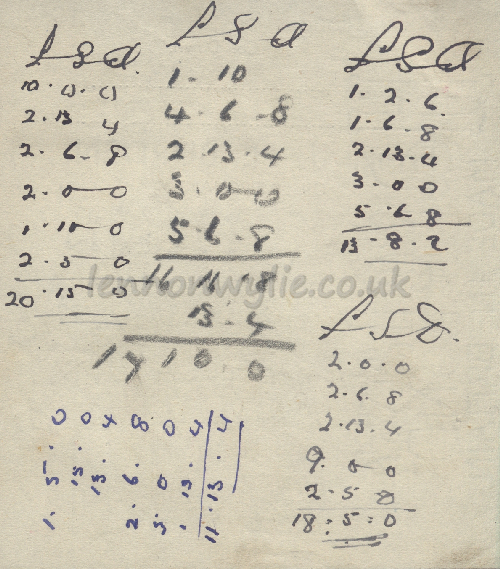 £ S d
10.0.0
2.13 4
2.6-8
2-0-0
1.10-0
2-5 0
20.15 0
£ S d
1-10
4.6-8
2.13.4
3.0-0
5.6.8
16 16.8
13-4
17 10 0
£ S d
1.2.6
1.6.8
2.13.4
3-0 0
5.6 8
13-8-2
£ S d
2.0.0
2.6.8
2.13.4
9.0 0
2.5 0
18:5:0
1.5.0
15.0
13.4
2.6.8
3.0 0
13.4
11.13.4
lennonwylie.co.uk